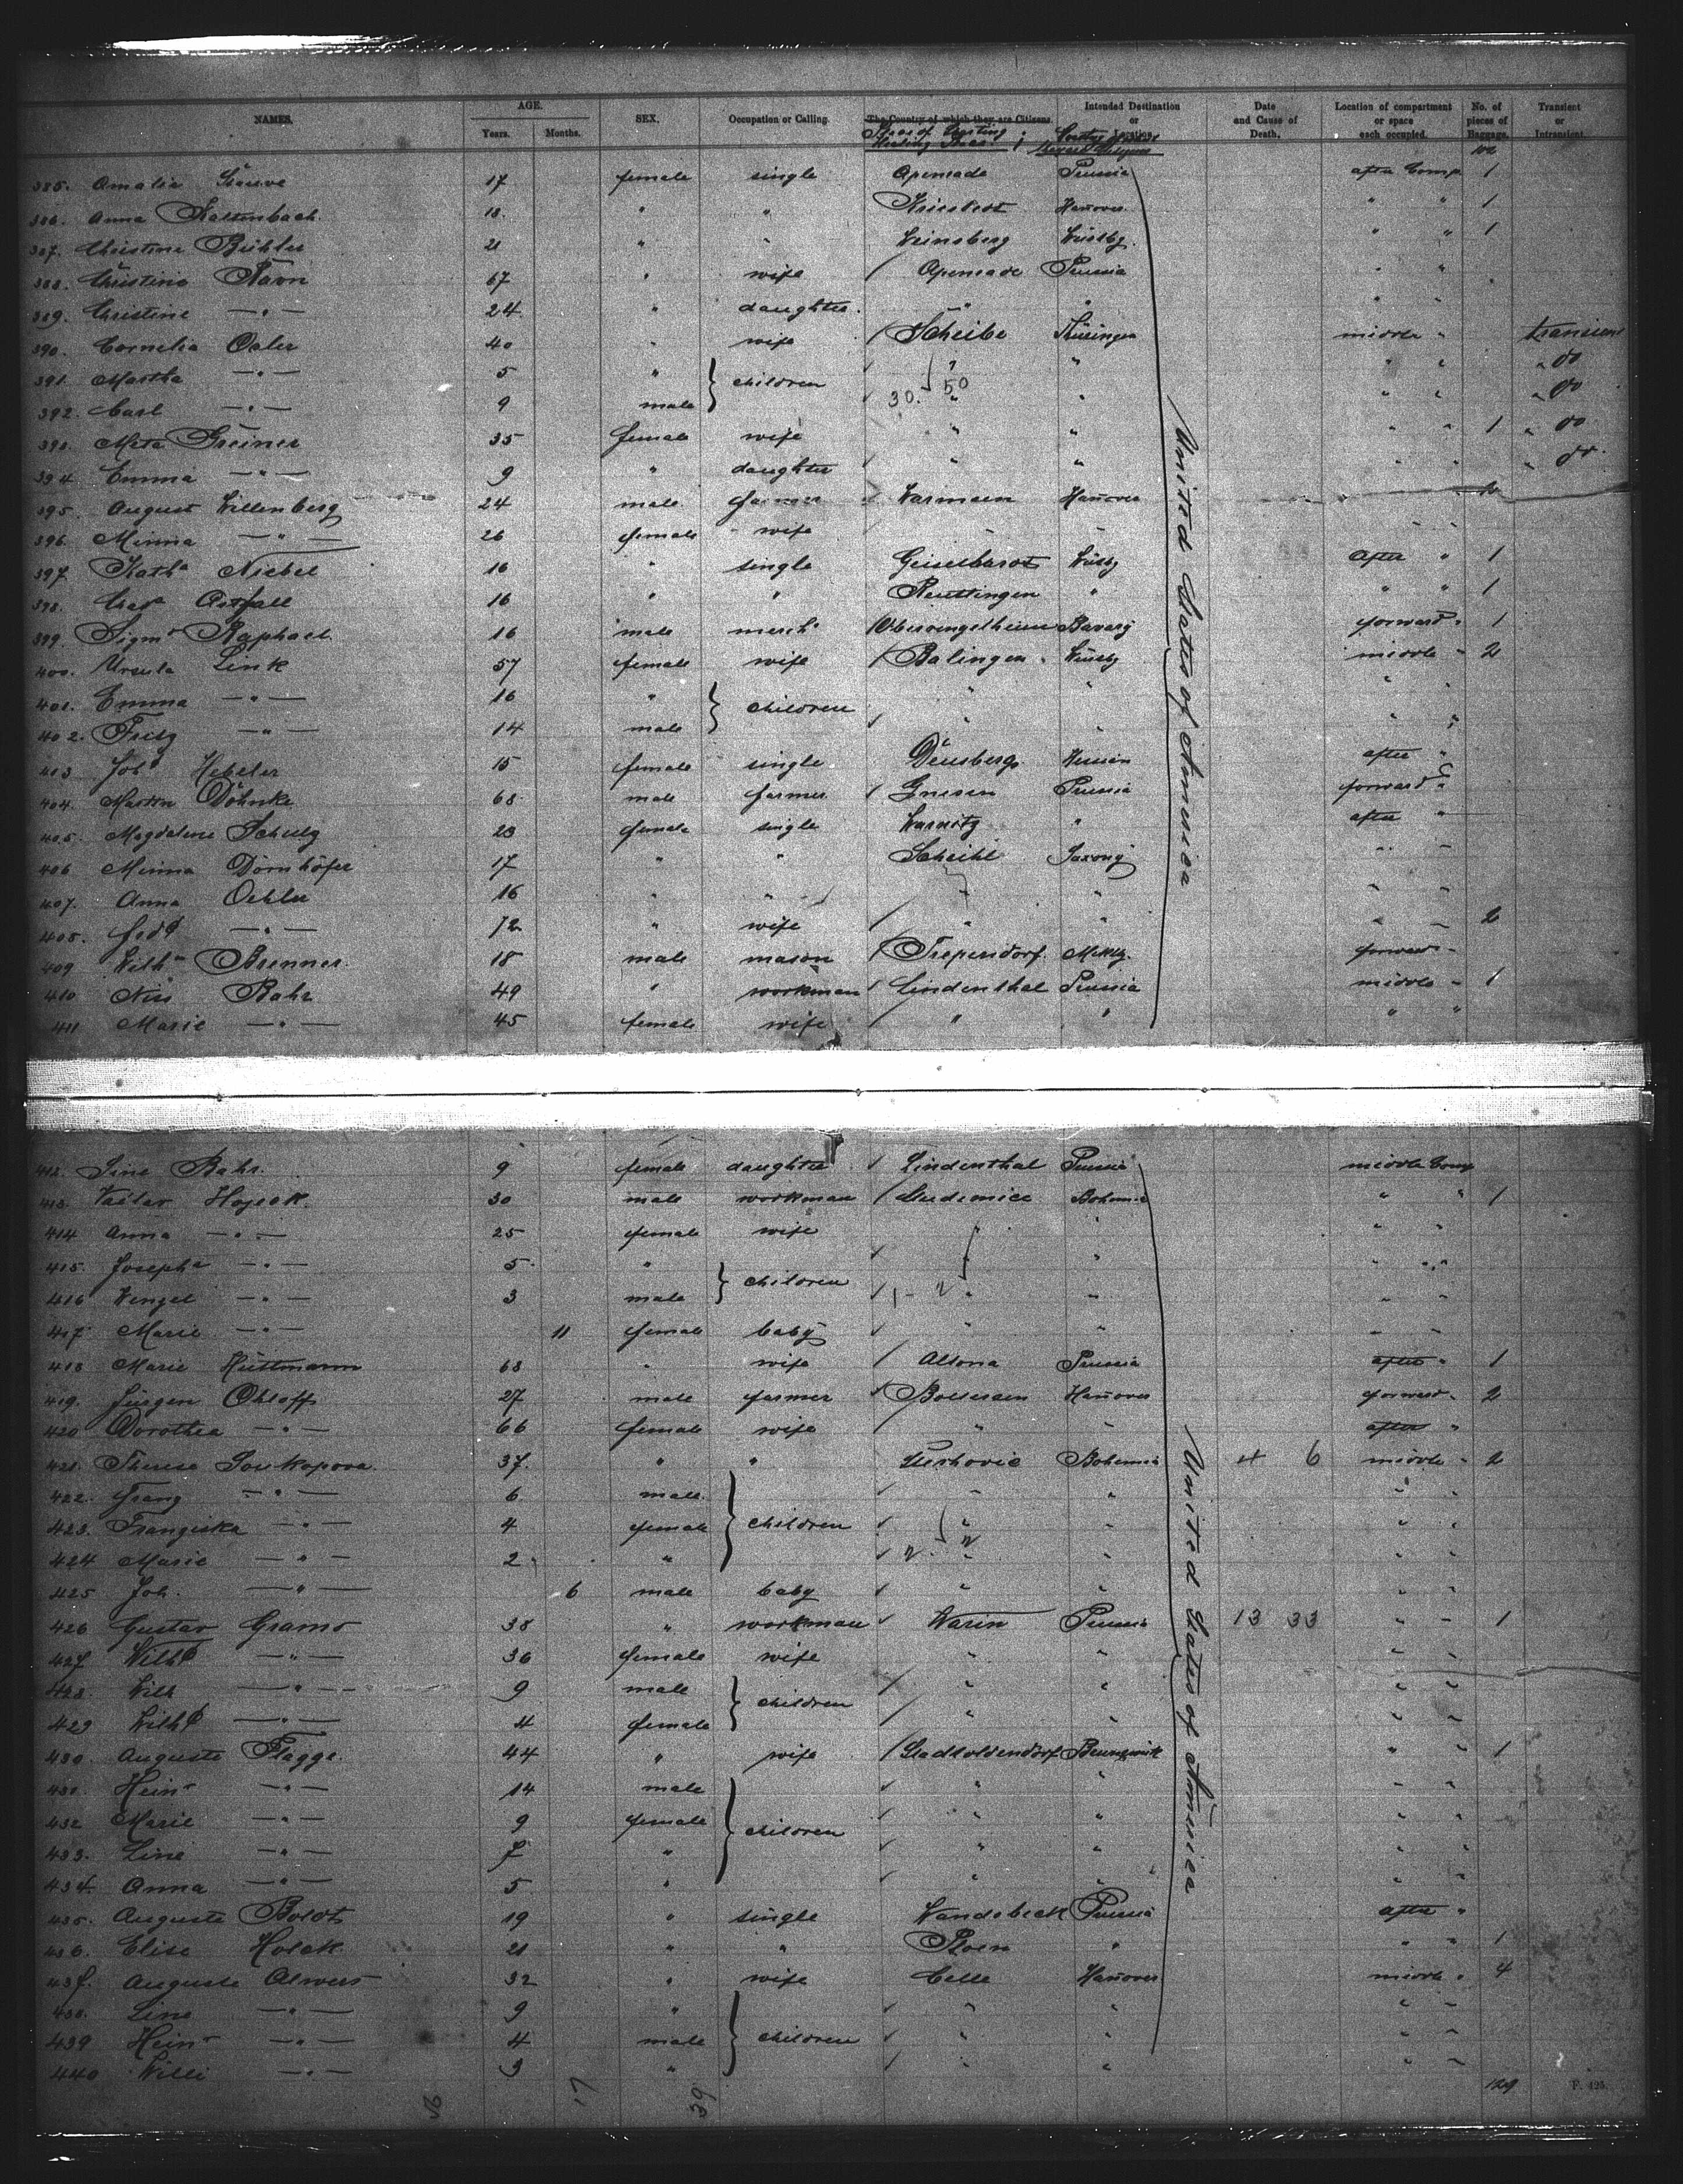 NAMES. AGE. Years. Months. SEX. Occupation or Calling. The Country of which they are Citizens. Intended Destination or Location. Date and Cause of Death. Location of compartment or space each occupied. No. of pieces of Baggage. Transient or Intransient.
102
385. Amalia 17 female single Apenrade Prussia after Comp 1
386. Anna Kaltenbach 18. " " Hanover " " 1
387. Christine Bühler 21 " " Weinsberg Würtbg. " " 1
388. Christine Ravn 67 " wife / Apenrade Prussia " "
389. Christine —"— 24 " daughter. " " " "
390. Cornelia Oaler 40 " wife / Scheibe Thüringen middle " transient
391. Martha —"— 5 " } children " " " " " do
392. Carl —"— 9 male 30. 50 " " " " " do
393. Meta Greiner 35 female wife " " " " 1 " do
394 Emma —"— 9 " daughter " " " " " do.
395. August Willenberg 24 male farmer Warmsen Hanover 2
396. Minna —"— 26 female wife " " " "
397. Katha Niebel 16 " single Geiselhardt Würtbg After " 1
398. Astfall 16 " " Reuttingen " " " 1
399. Sigmd Raphael 16 male mercht / Bavary forward " 1
400. Ursula Link 57 female wife / Balingen Würtbg middle " 2
401. Emma —"— 16 " } children " " " "
402. Fritz —"— 14 male " " " "
403 Joha Hebeler 15 female single Hessen after "
404. Martin Döhnke 68 male farmer / Gnesen Prussia forward "
405. Magdalene Schulz 23 female single Warnitz " after "
406 Minna Dornhöfer 17 " " Scheibe Saxony " "
407. Anna Oehler 16 " " " " " "
408. —"— 72 " wife / " " " " 2
409 Wilhm Brenner. 18 male mason / Mcklbg. forward "
410 Nis Bahr 49 " workman / Lindenthal Prussia middle " 1
411 Marie —"— 45 female wife / " " " "
412. Sine Bahr. 9 female daughter Lindenthal Prussia middle Comp
413. Vaclav Hajeck 30 male workman / Bohemia " " 1
414 Anna —"— 25 female wife " " " "
415. Josepha —"— 5 " } children " " " "
416 Wenzel —"— 3 male " " " "
417 Marie —"— 11 female baby " " " "
418 Marie Hüttmann 68 " wife / Altona Prussia after " 1
419. Jürgen Ohloff 27 male farmer Bollersen Hanover forward " 2
420 Dorothea —"— 66 female wife / " " after "
421. Therese Soukopova 37. " " Bohemia 4 6 middle " 2
422. Franz —"— 6 male } children " " " "
423. Franziska —"— 4 female " " " "
424 Marie —"— 2 " " " " "
425 Joh. —"— 6 male baby " " " "
426 Gustav Grams 38 " workman Warin Prussia 13 33 " " 1
427 —"— 36 female wife " " " "
428. Wilh —"— 9 male } children / " " " "
429 —"— 4 female / " " " "
430. Auguste Plagge. 44 " wife / Stadtoldendorf Brunzwick " " 1
431. Heinr —"— 14 male " " " "
432 Marie —"— 9 female } children " " " "
433. Line —"— 7 " " " " "
434. Anna —"— 5 " " " " "
435. Auguste Boldt 19 " single Wandsbeck Prussia after "
436. Elise Holck 21 " " Ploen " " " 1
437. Auguste Alwers 32 " wife Celle Hanover middle " 4
438. Line —"— 9 " } children " " " "
439 Heinr —"— 4 male " " " "
440 Willi —"— 3 " / " " " "
United States of America
United States of America
16 17 39
129
P. 125.